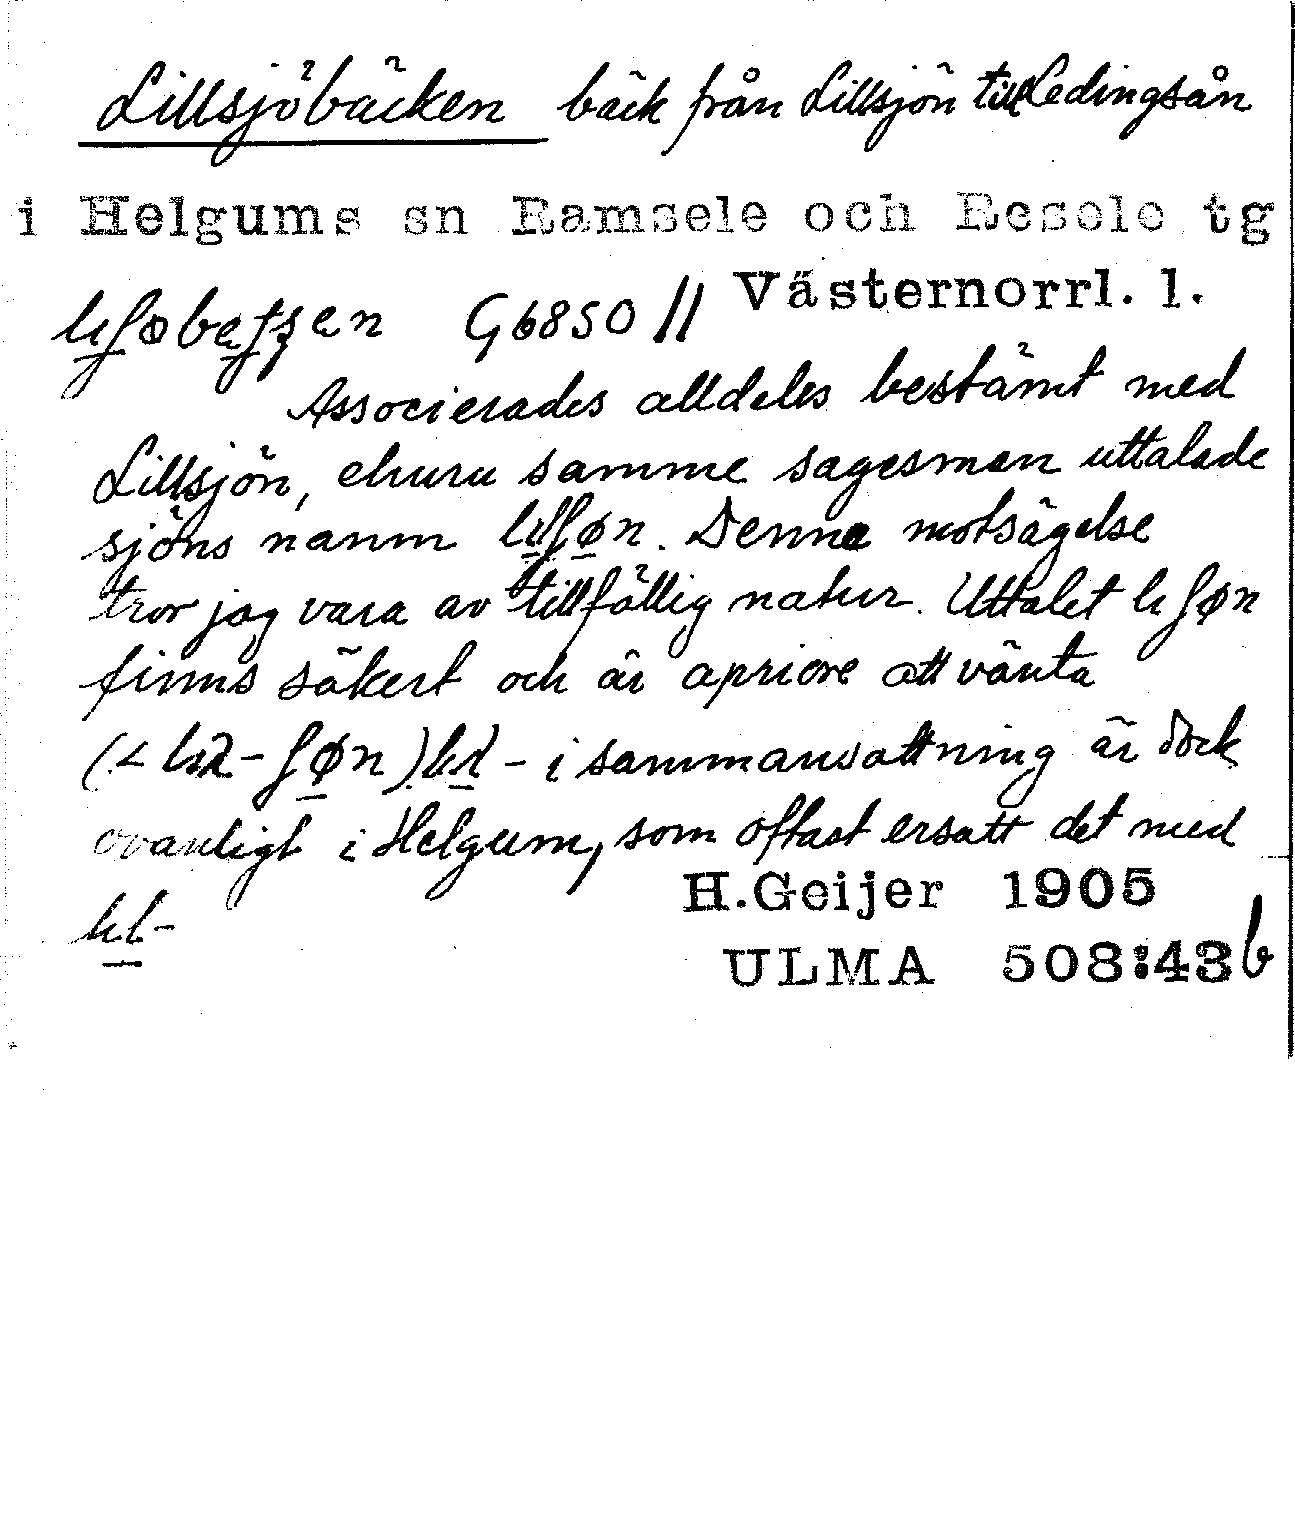 Lillsjöbäcken bäck från Lillsjön till Ledingsån
i Helgums sn Ramsele och Resele tg
Västernorrl. l.
G6850 //
Associerades alldeles bestämt med
Lillsjön, ehuru samme sagesman uttalade
sjöns namn Denna motsägelse
tror jag vara av tillfällig natur. Uttalet
finns säkert och är apriore att vänta
- i sammansättning är dock
ovanligt i Helgum, som oftast ersatt det med
H.Geijer 1905
ULMA 508:43b